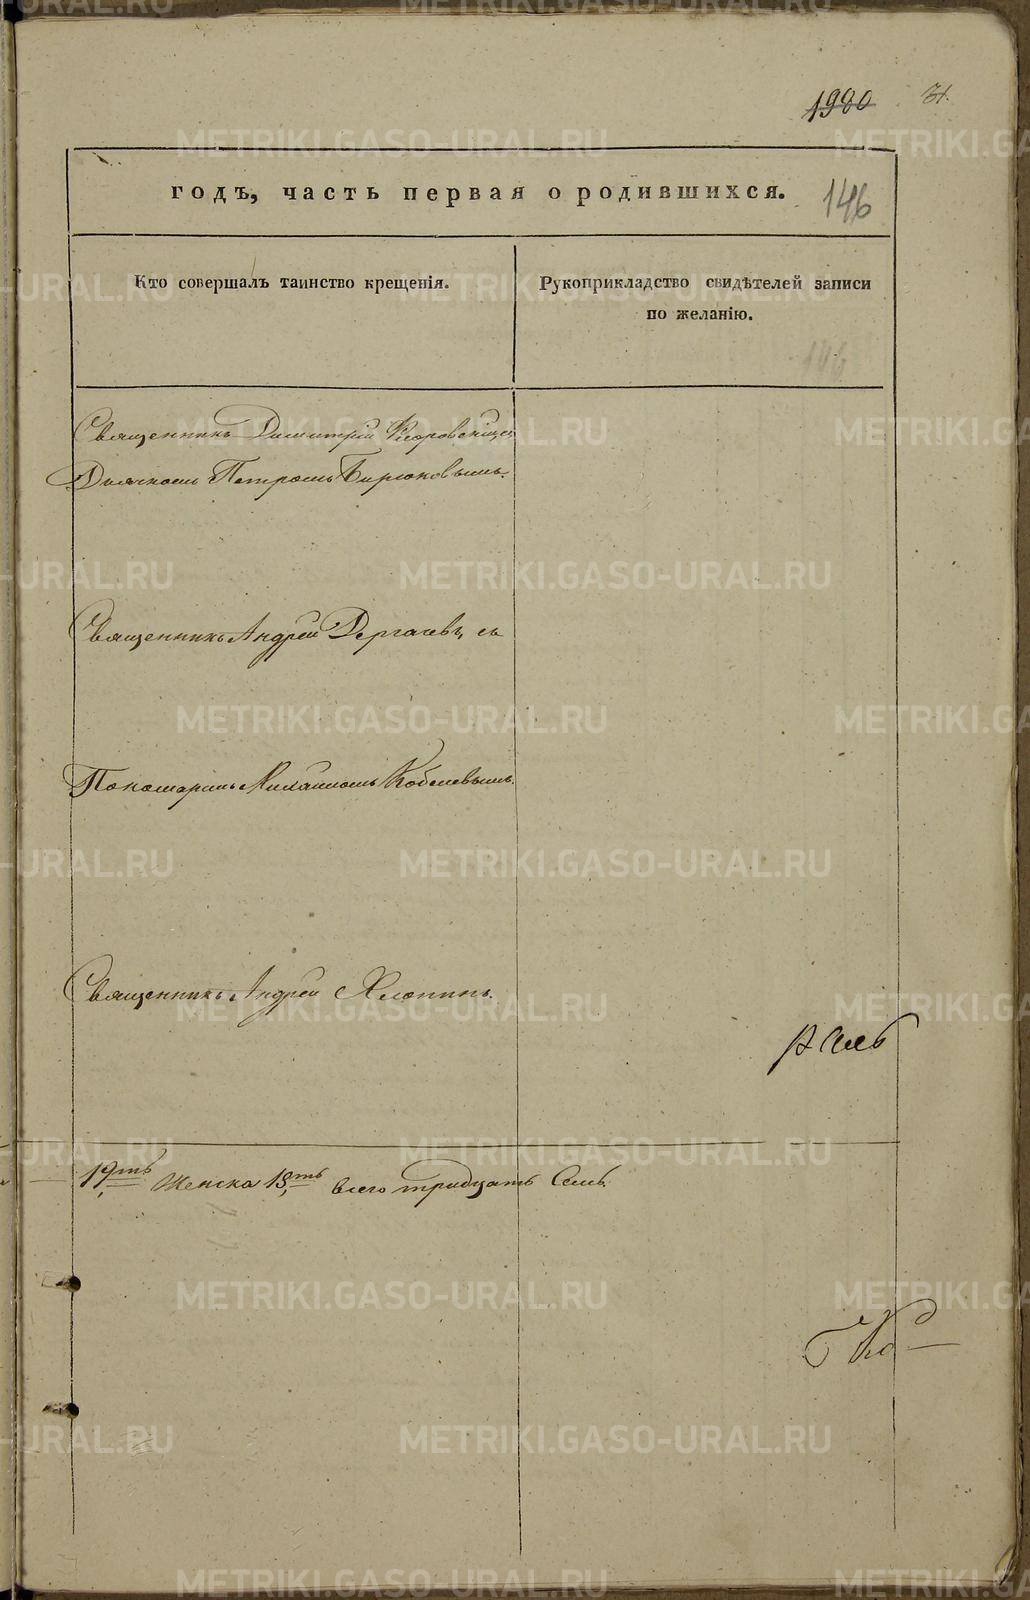 1980
31.
годъ, часть первая о родившихся.
146
Кто совершалъ таинство крещенія.
Рукоприкладство свидѣтелей записи
по желанію.
146
Священникъ Димитрій
Дьячкомъ Петромъ Бирюковымъ.
Священникъ Андрей Дергачевъ, съ
Пономаремъ Михаиломъ Кобелевымъ.
Священникъ Андрей Хлопинъ.
19ть Женска 18ть всего тридцать Семь.
METRIKI.GASO-URAL.RU